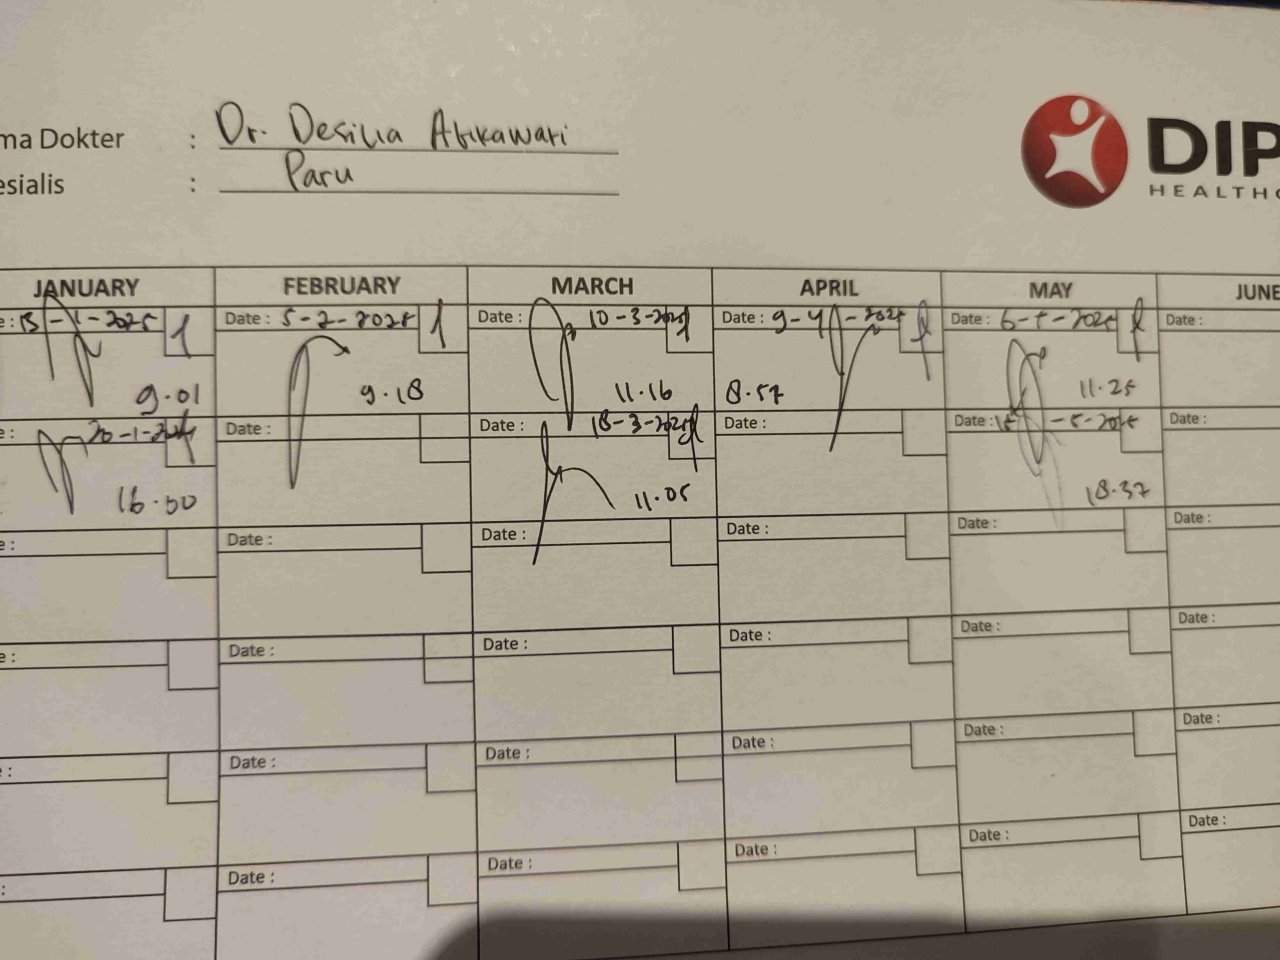 ma Dokter : Dr. Desilia Atikawati
esialis : Paru
DIP
HEALTHC
JANUARY FEBRUARY MARCH APRIL MAY JUNE
e : 13-1-2025 1 Date : 5-2-2025 1 Date : 10-3-2025 Date : 9-4-2025 Date : 6-5-2025 Date :
9.01 9.18 11.16 8.57 11.25
e : 20-1-2025 Date : Date : 18-3-2025 Date : Date : 15-5-2025 Date :
16.50 11.05 18.37
e : Date : Date : Date : Date : Date :
e : Date : Date : Date : Date : Date :
: Date : Date : Date : Date : Date :
: Date : Date : Date : Date : Date :